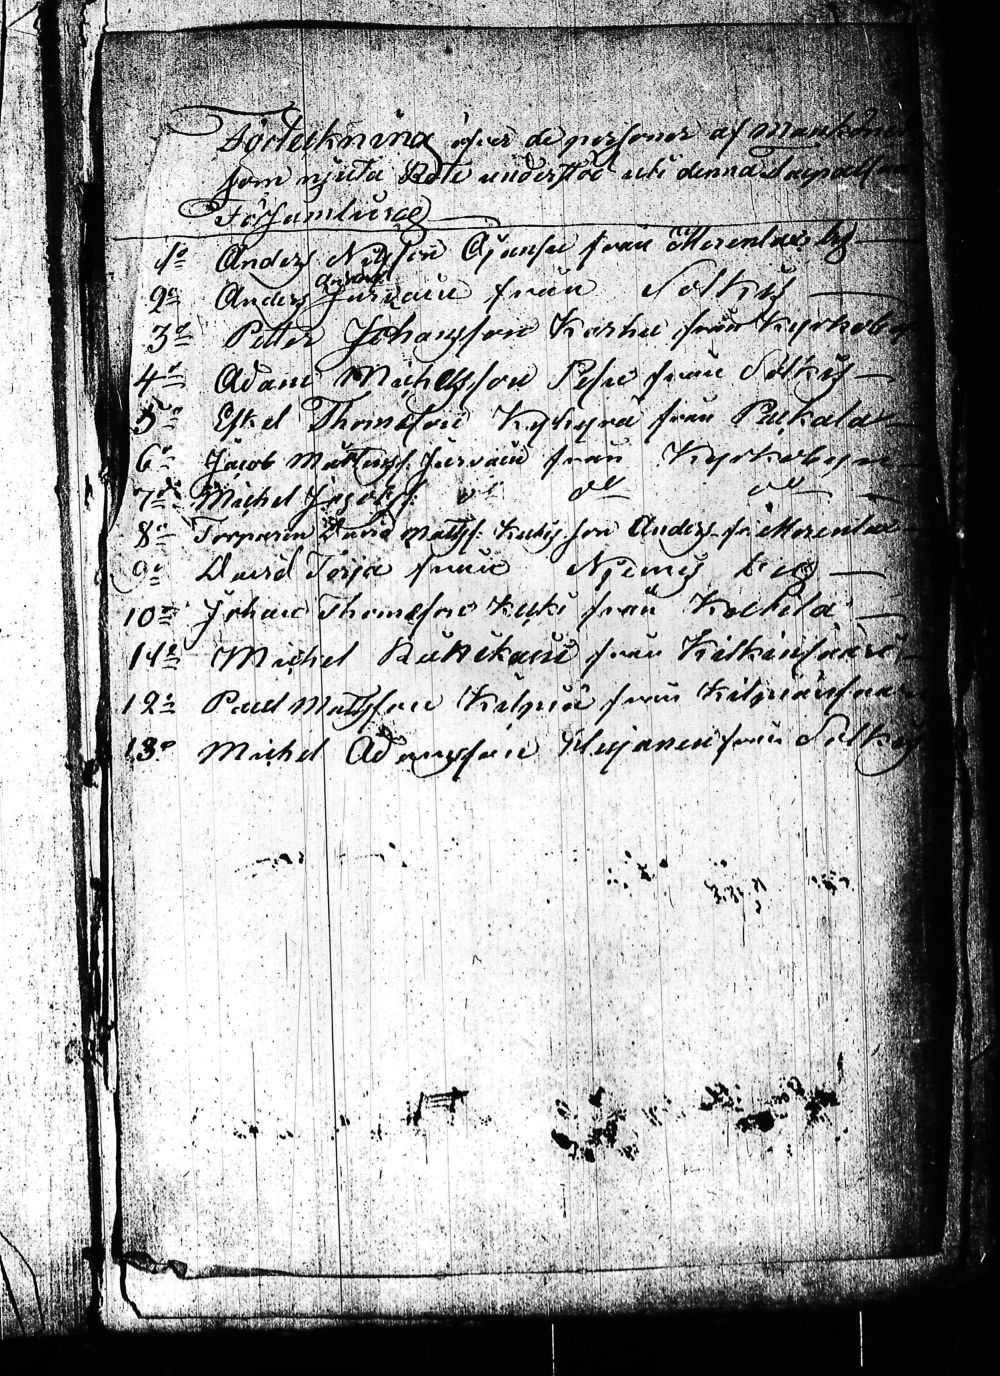 Förteckning öfver de personer af Mankönet
som njuta Rote understöd uti denna Taipalsaari
Församling
1o Anders Nilsson Ojansu från Merenlax by
2o Anders Andersss Jurvain från Solkis
3o Petter Johansson Karhu från Kyrkoby
4o Adam Michelsson Pesu från Solkis
5o Eskel Thomasson Kylmä från Paekala
6o Jacob Mattss. Jurvain från Kyrkobyn
7o Michel Jacobss. do do do
8o Torparen David Matss. Kukis son Anders fr. Merenlax
9o David Torja från Niemis by
10o Johan Thomasson Kuki från Kuhila
11o Michel Kukkain från Kilkinsaari
12o Paul Matsson Kilpiä från Kilpiänsaari
13o Michel Adamsson Hujanen från Solkis